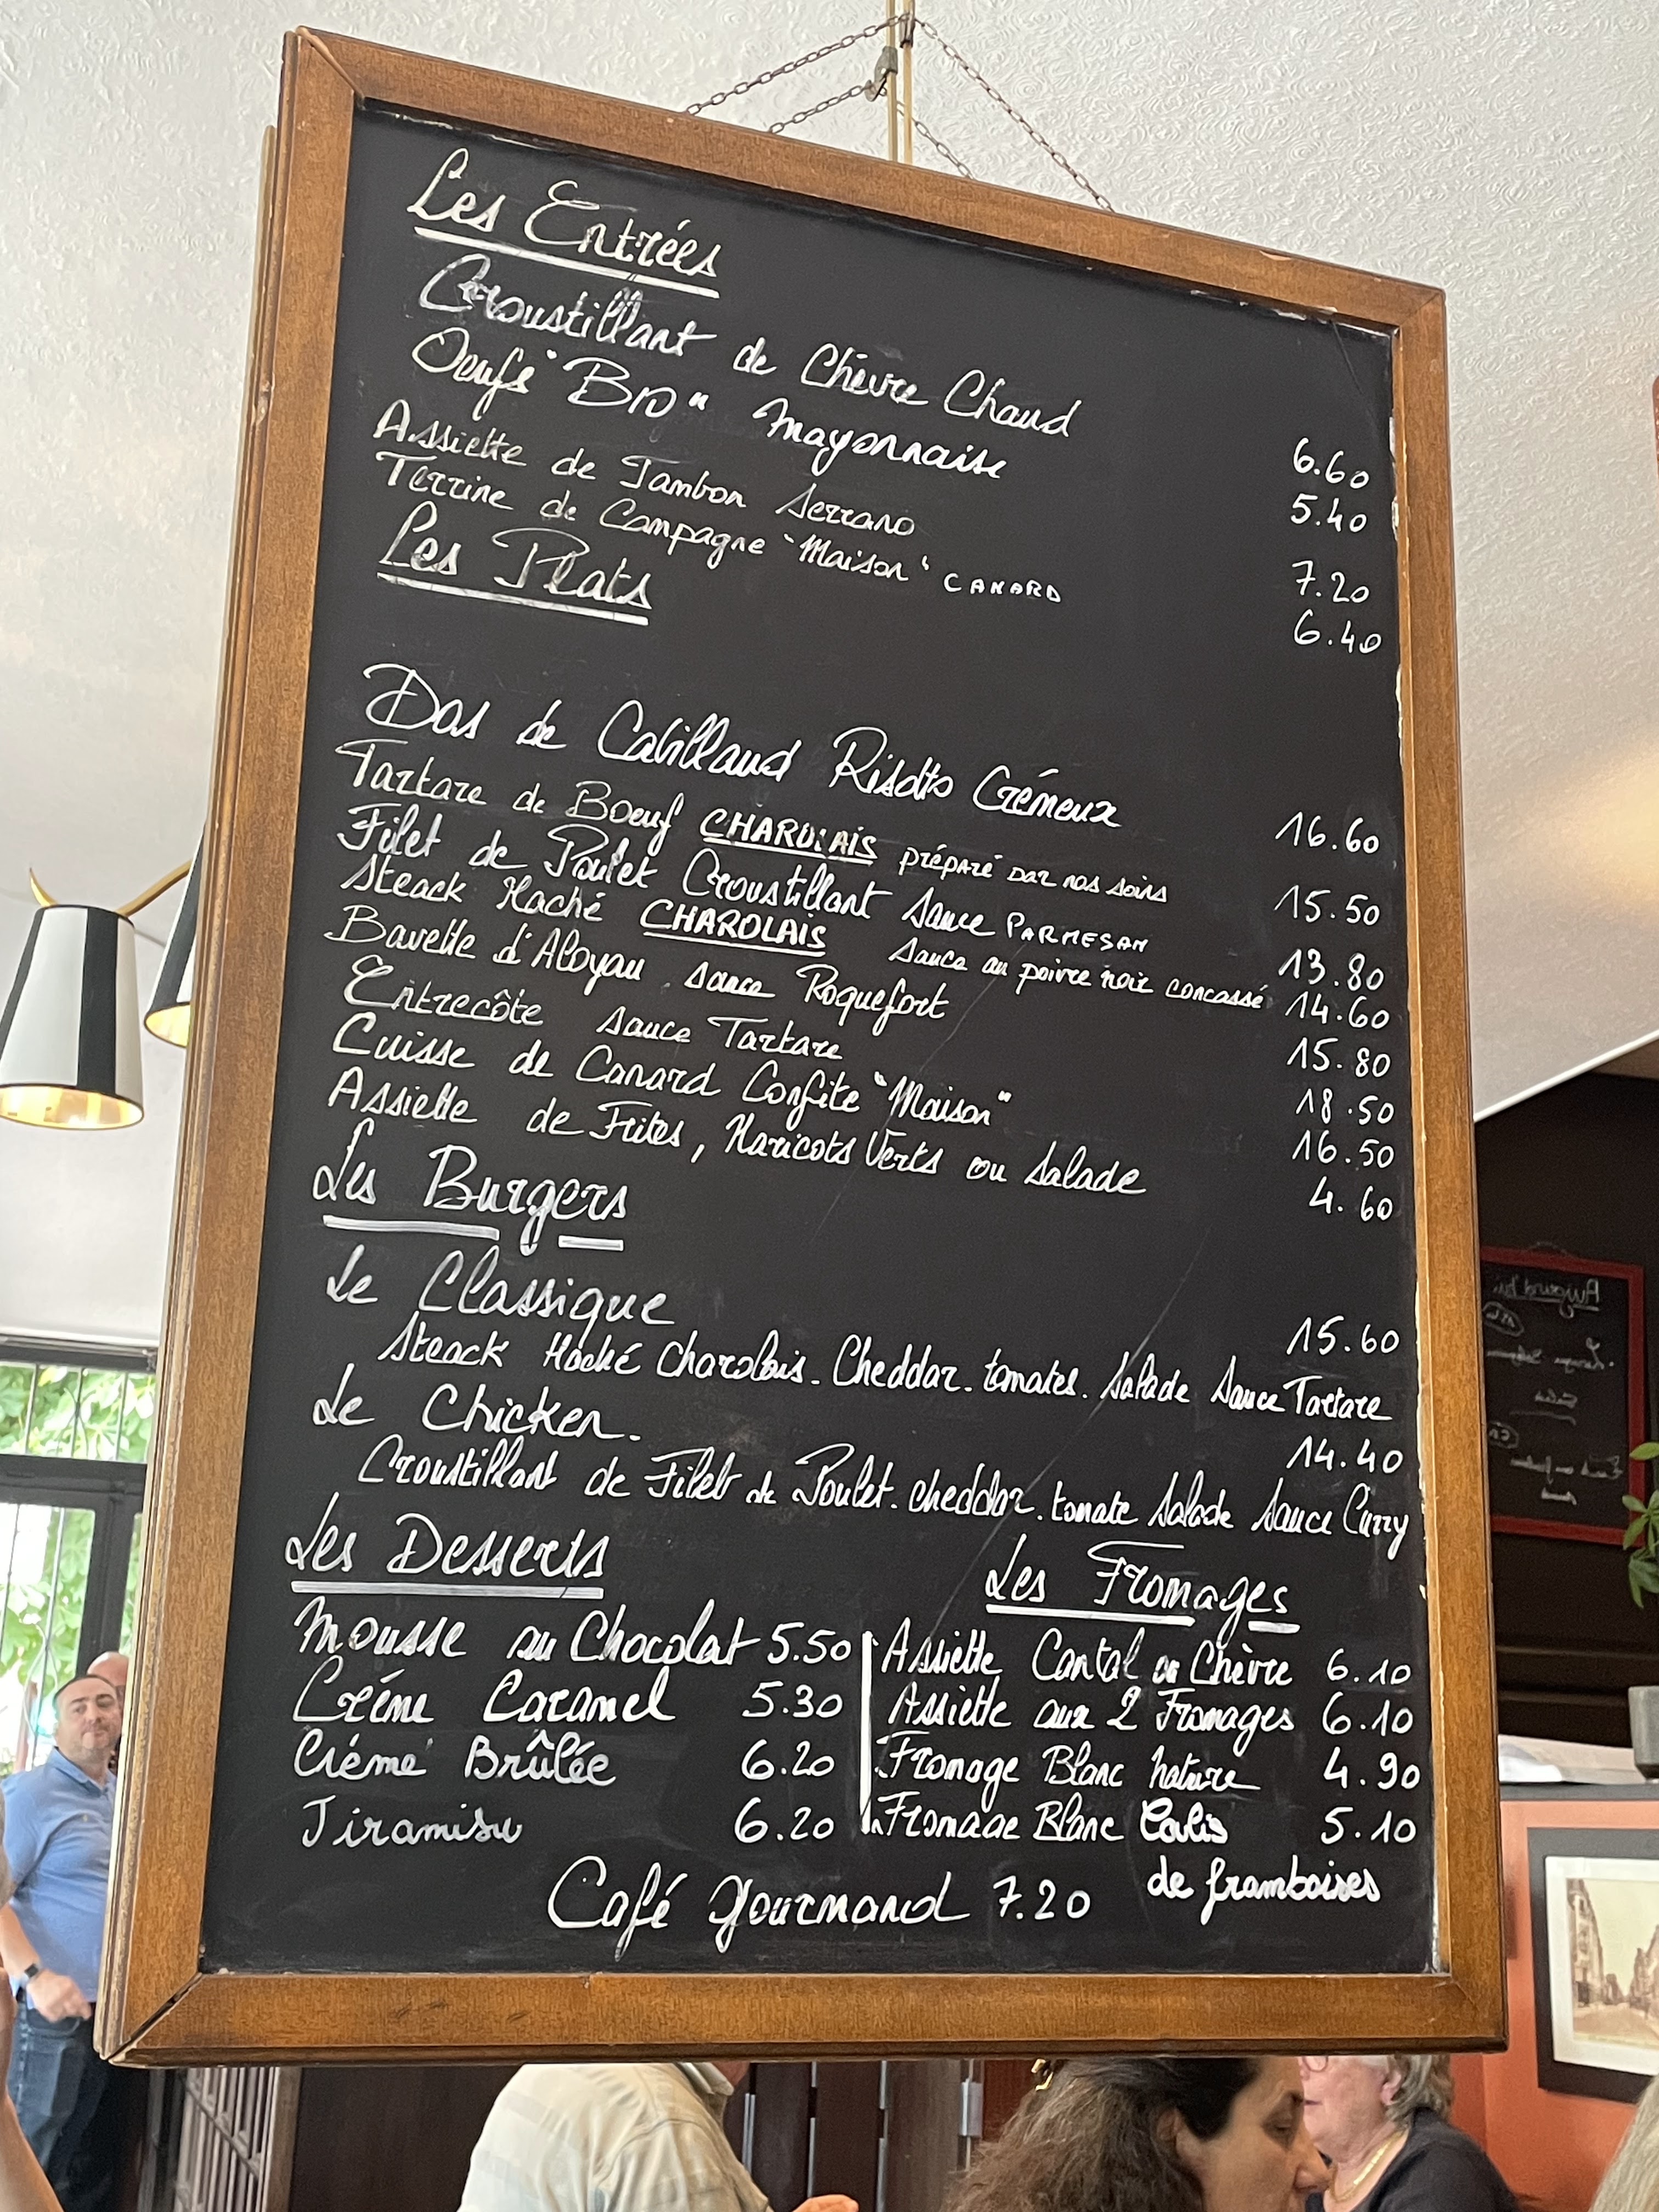 Les Entrées
Croustillant de Chèvre Chaud 6.60
Oeufs "BIO" mayonnaise 5.40
Assiette de Jambon Serrano 7.20
Terrine de Campagne "Maison" CANARD 6.40
Les Plats
Dos de Cabillaud Risotto Crémeux 16.60
Tartare de Boeuf CHAROLAIS préparé par nos soins 15.50
Filet de Poulet Croustillant Sauce PARMESAN 13.80
Steack Haché CHAROLAIS Sauce au poivre noir concassé 14.60
Bavette d'Aloyau sauce Roquefort 15.80
Entrecôte sauce Tartare 18.50
Cuisse de Canard Confite "Maison" 16.50
Assiette de Frites, Haricots Verts ou Salade 4.60
Les Burgers
Le Classique 15.60
Steack Haché Charolais. Cheddar. tomates. Salade Sauce Tartare
Le Chicken. 14.40
Croustillant de Filet de Poulet. cheddar. tomate Salade Sauce Curry
Les Desserts
Mousse au Chocolat 5.50
Crème Caramel 5.30
Crème Brûlée 6.20
Tiramisu 6.20
Les Fromages
Assiette Cantal ou Chèvre 6.10
Assiette aux 2 Fromages 6.10
Fromage Blanc nature 4.90
Fromage Blanc Coulis 5.10
de framboises
Café gourmand 7.20